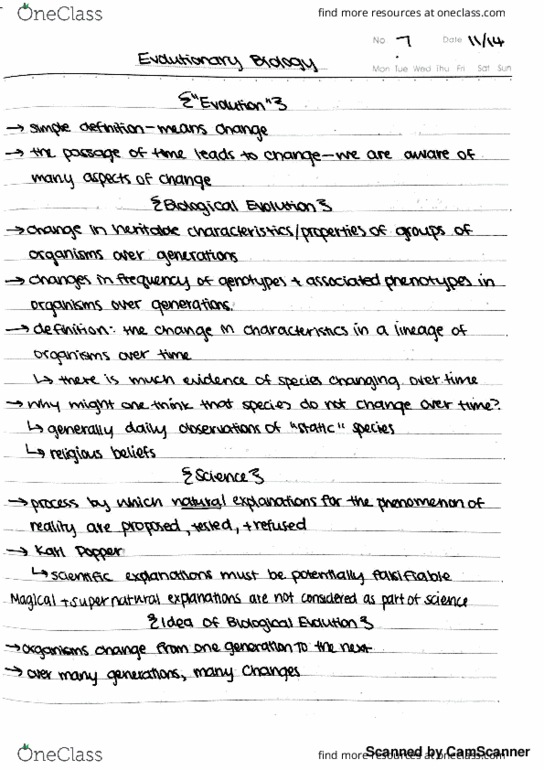 OneClass
find more resources at oneclass.com
No 7 Date 11/14
Mon Tue Wed Thu Fri Sat Sun
Evolutionary Biology
{"Evolution"}
→ simple definition - means change
→ the passage of time leads to change - we are aware of
many aspects of change
{Biological Evolution}
→ change in heritable characteristics/properties of groups of
organisms over generations
→ changes in frequency of genotypes + associated phenotypes in
organisms over generations.
→ definition: the change in characteristics in a lineage of
organisms over time
↳ there is much evidence of species changing over time
→ why might one think that species do not change over time?
↳ generally daily observations of "static" species
↳ religious beliefs
{Science}
→ process by which natural explanations for the phenomenon of
reality are proposed, tested, + refused
→ Karl Popper
↳ scientific explanations must be potentially falsifiable
Magical + supernatural explanations are not considered as part of science
{Idea of Biological Evolution}
→ organisms change from one generation to the next
→ over many generations, many changes
OneClass
find more resources at oneclass.com
Scanned by CamScanner